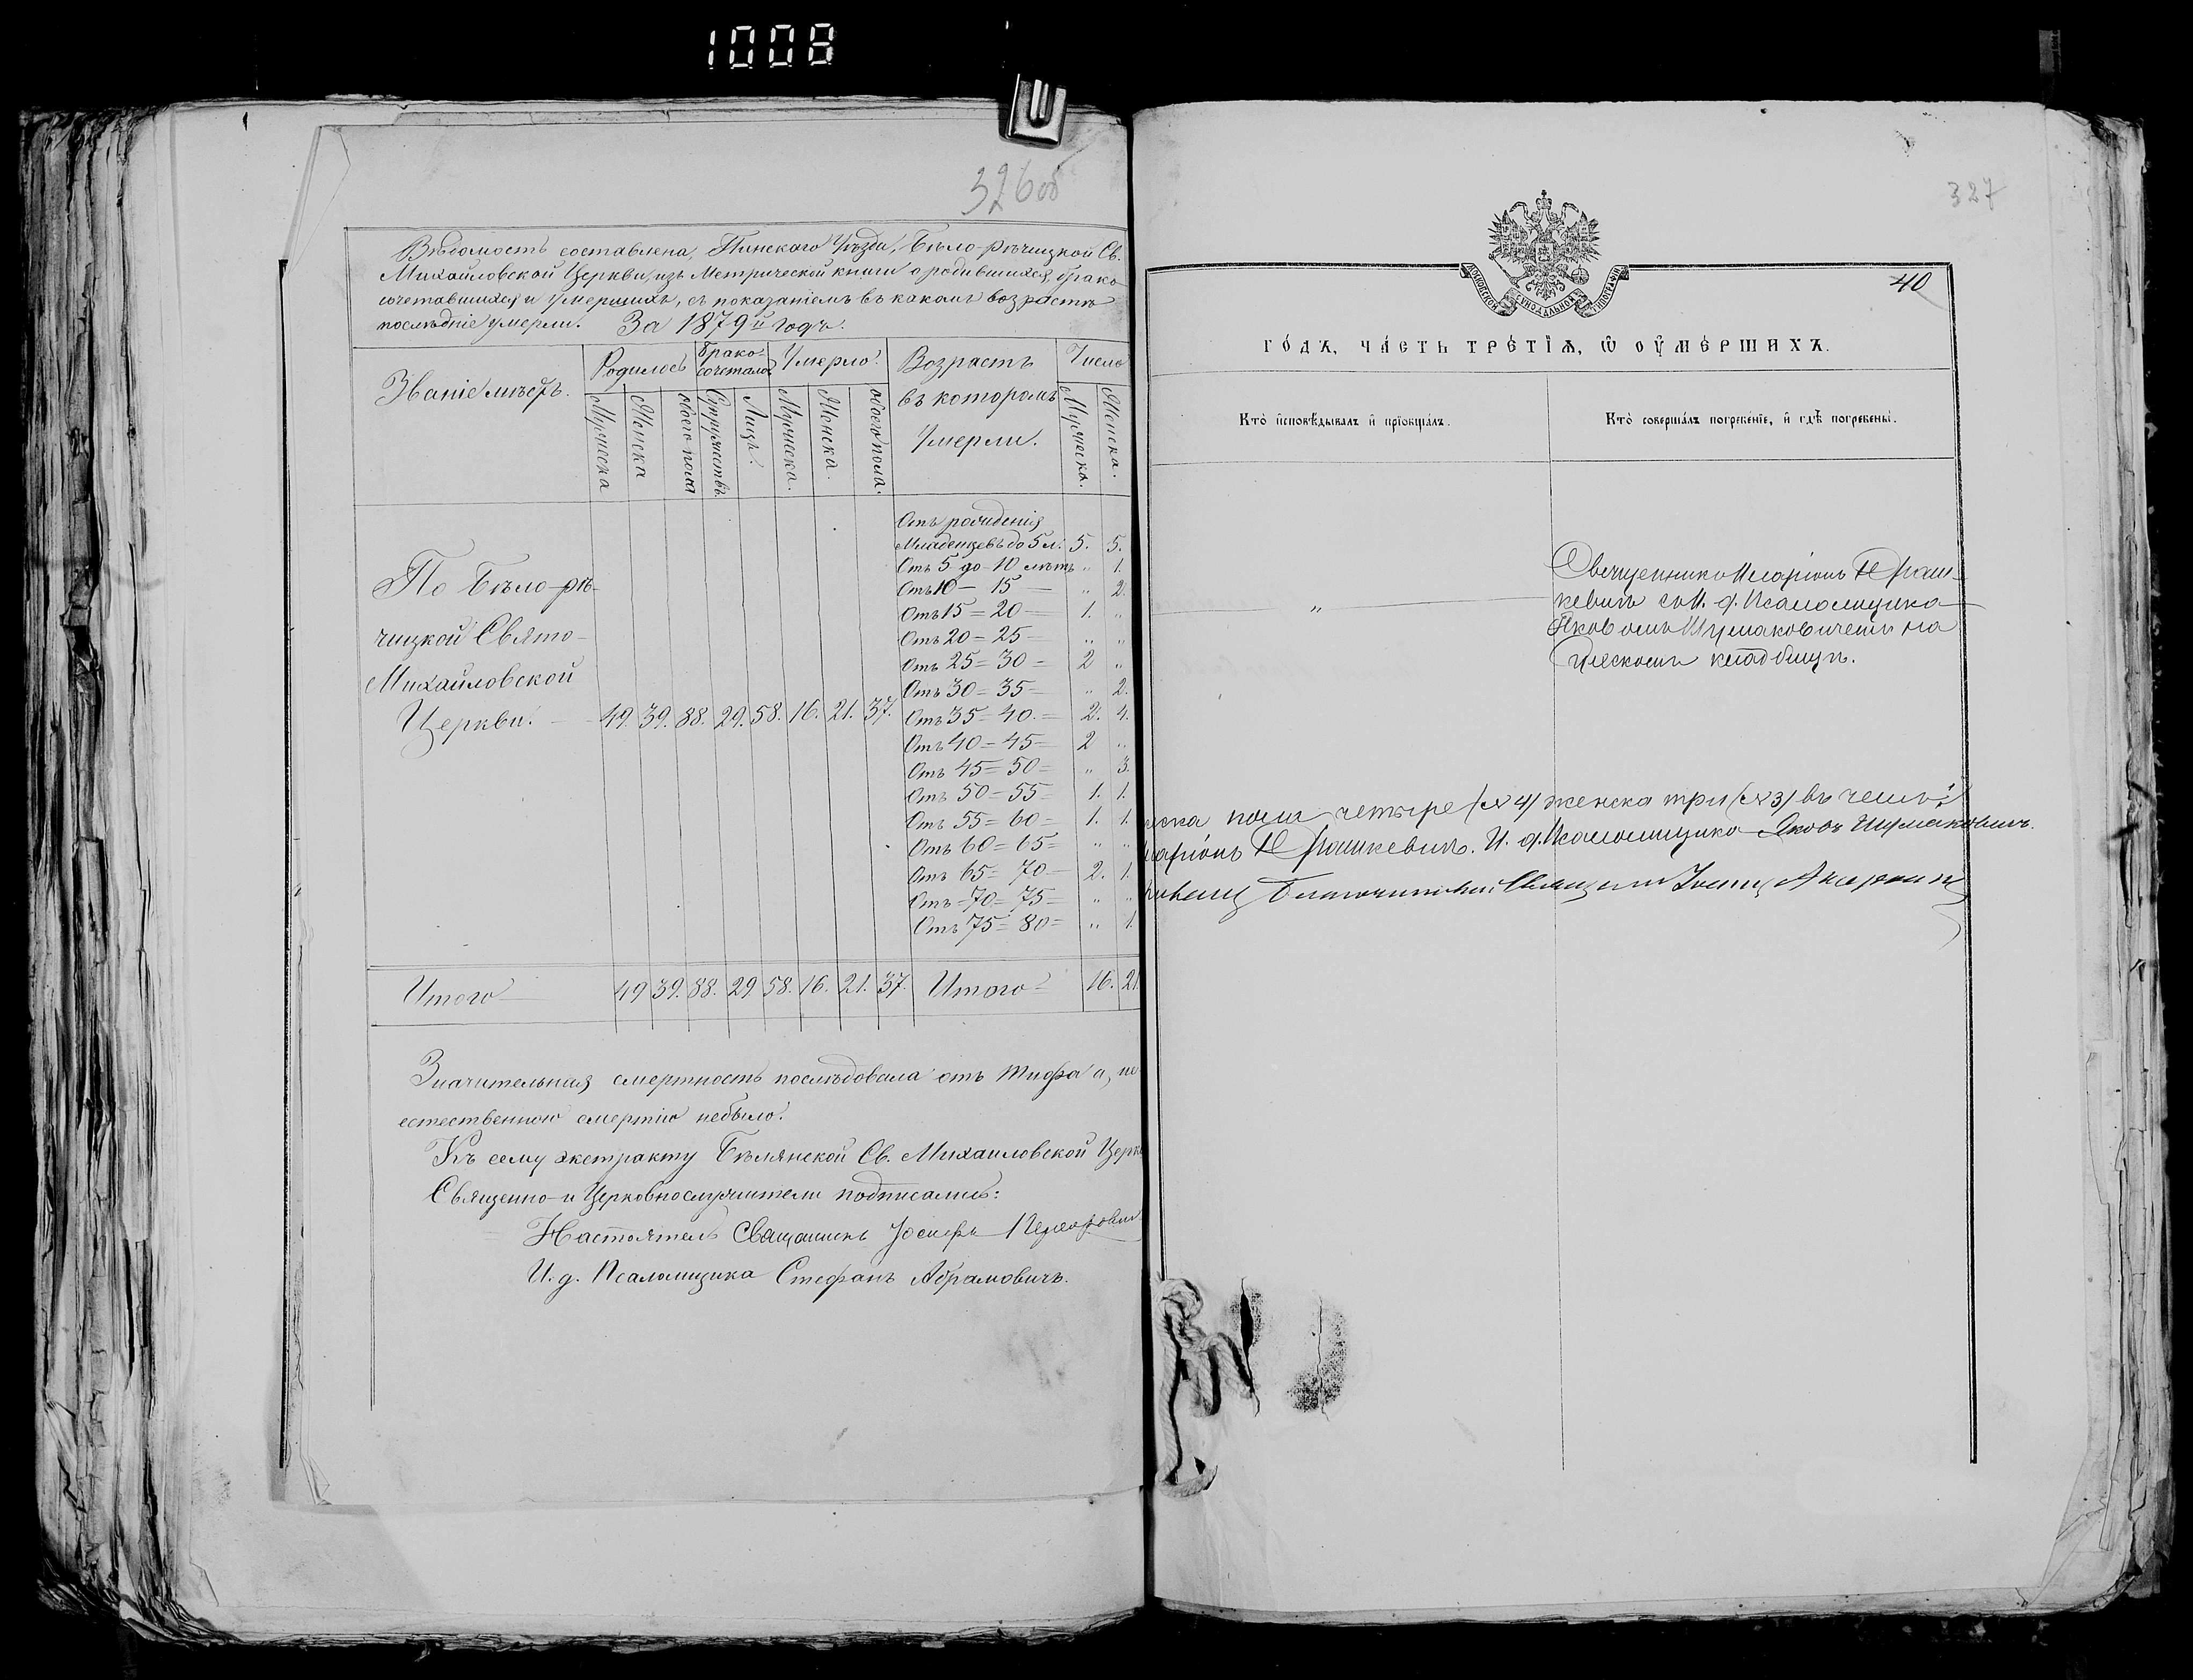 1008
326 об
Вѣдомость составлена, Пинскаго Уѣзда, Бѣло-рѣчицкой Св.
Михайловской Церкви, изъ Метрической книги о родившихся, брако
сочетавшихся и умершихъ, съ показаніемъ въ какомъ возрастѣ
послѣдніе умерли. За 1879й годъ.
Званіе мѣстъ. Родилось Брако- сочеталось Умерло. Возрастъ въ которомъ Умерли. Число
Мужеска Женска обоего пола Супружествъ. Лицъ. Мужеска. Женска. обоего пола. Мужеска. Женска.
Отъ рожденія
младенцевъ до 5 л. 5. 5.
Отъ 5 до 10 лѣтъ „ 1.
Отъ 10 — 15 — „ 2.
Отъ 15 = 20 — 1. „
Отъ 20 = 25 — „ „
Отъ 25 = 30 = 2 „
Отъ 30 = 35 — „ 2.
По Бѣло-рѣ-
чицкой Свято-
Михайловской
Церкви. 49. 39. 88. 29. 58. 16. 21. 37. Отъ 35 = 40. = 2. 4.
Отъ 40 = 45 = 2 „
Отъ 45 = 50 = „ 3.
Отъ 50 = 55 1. 1.
Отъ 55 = 60 = 1. 1.
Отъ 60 = 65 = „ „
Отъ 65 = 70 — 2. 1.
Отъ 70 = 75 = „ „
Отъ 75 = 80 = „ 1.
Итого 49 39. 88. 29 58. 16. 21. 37. Итого 16. 21.
Значительная смертность послѣдовала отъ тифа а, не
естественною смертію небыло.
Къ сему экстракту Бѣлянской Св. Михаиловской Церк
Священно- и Церковнослужители подписались:
Настоятель Священникъ Іосифъ
И. д. Псаломщика Стефанъ Абрамовичъ.
327
40
МОСКОВСКОЙ СѴНОДАЛЬНОЙ ТИПОГРАФІИ
ГО́ДЪ, ЧА́СТЬ ТРЕ́ТІѦ, Ѡ҆ ОУ҆МЕ́РШИХЪ.
Кто̀ и҆сповѣ́дывалъ и҆ прїѡбща́лъ.
Кто̀ соверша́лъ погребе́нїе, и҆ гдѣ̀ погребены̀.
„
Священникъ Иларіонъ Праш-
кевичъ съ И. д. Псаломщика
Яковомъ Шумаковичемъ на
кладбищѣ.
жска пола четыре (№ 4) женска три (№ 3) въ чемъ:
ларіонъ Прашкевичъ. И. д. Псаломщика Яковъ Шумаковичъ.
Благочинный Священникъ